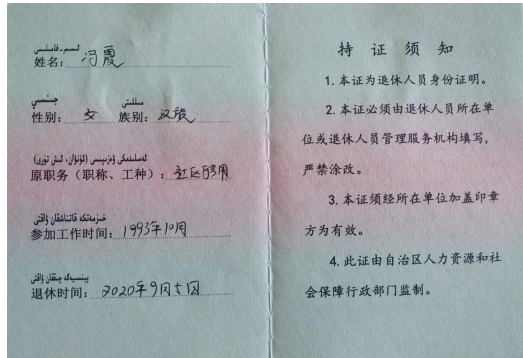 ئىسىم-فامىلىسى
姓名：冯霞
جىنسىي مىللىتى
性别：女 族别：汉族
ئەسلىدىكى ۋەزىپىسى (ئۇنۋان، ئىش تۈرى)
原职务（职称、工种）：社区
خىزمەتكە قاتناشقان ۋاقتى
参加工作时间：1993年10月
پېنسىيەگە چىققان ۋاقتى
退休时间：2020年9月5日
持证须知
1.本证为退休人员身份证明。
2.本证必须由退休人员所在单
位或退休人员管理服务机构填写，
严禁涂改。
3.本证须经所在单位加盖印章
方为有效。
4.此证由自治区人力资源和社
会保障行政部门监制。